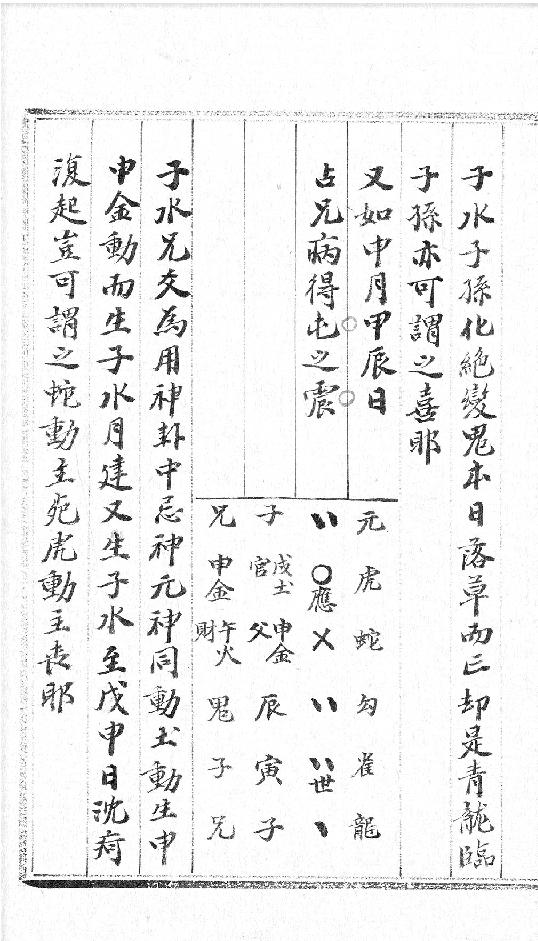 子水子孫化絕變鬼本日落草而亡却是青龍臨
子孫亦可謂之喜耶
又如申月甲辰日
占兄病得屯之震
元虎蛇勾雀龍
〇應乂世
子戌土官申金父辰寅子
兄申金午火財鬼子兄
子水兄爻為用神卦中忌神元神同動土動生申
申金動而生子水月建又生子水至戊申日沈疴
復起豈可謂之蛇動主死虎動主喪耶